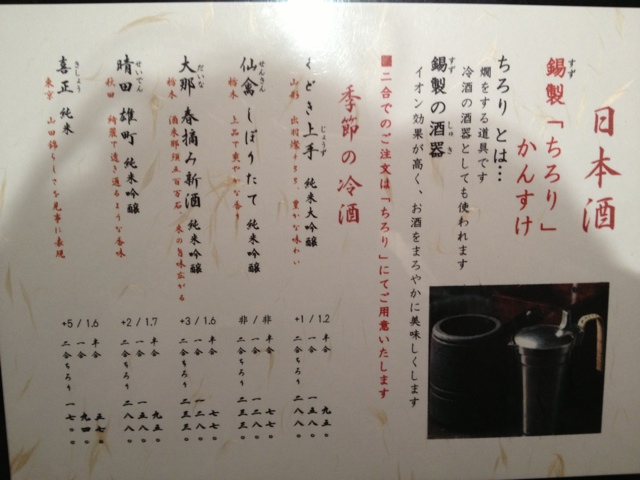 日本酒
錫製「ちろり」
すず
かんすけ
ちろり とは…
燗をする道具です
冷酒の酒器としても使われます
錫製の酒器
すず しゅき
イオン効果が高く、お酒をまろやかに美味しくします
■二合でのご注文は「ちろり」にてご用意いたします
季節の冷酒
くどき上手 純米大吟醸
じょうず
山形 出羽燦々 豊かな味わい
+1 / 1.2
半合 九五〇
一合 一五八〇
二合ちろり 二八八〇
仙禽 しぼりたて 純米吟醸
せんきん
栃木 上品で爽やかな香り
非 / 非
半合 七七〇
一合 一二八〇
二合ちろり 二三三〇
大那 春摘み新酒 純米吟醸
だいな
栃木 酒米那須五百万石 米の旨味広がる
+3 / 1.6
半合 七七〇
一合 一二八〇
二合ちろり 二三三〇
晴田 雄町 純米吟醸
せいでん
秋田 綺麗で透き通るような香味
+2 / 1.7
半合 九五〇
一合 一五八〇
二合ちろり 二八八〇
喜正 純米
きしょう
東京 山田錦らしさを見事に表現
+5 / 1.6
半合 五七〇
一合 九四〇
二合ちろり 一七〇〇